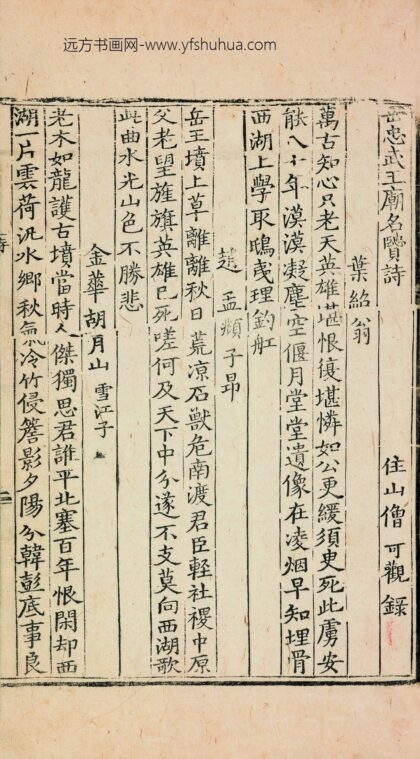 远方书画网-www.yfshuhua.com
岳忠武王廟名賢詩
住山僧 可觀 錄
葉紹翁
萬古知心只老天英雄堪恨復堪憐如公更緩須臾死此虜安
能八十年漠漠凝塵空偃月堂堂遺像在凌烟早知埋骨
西湖上學取鴟夷理釣船
趙孟頫 子昂
岳王墳上草離離秋日荒凉石獸危南渡君臣輕社稷中原
父老望旌旗英雄已死嗟何及天下中分遂不支莫向西湖歌
此曲水光山色不勝悲
金華胡月山 雪江子
老木如龍護古墳當時人傑獨思君誰平北塞百年恨閑却西
湖一片雲荷汎水鄉秋氣冷竹侵簷影夕陽分韓彭底事良
二